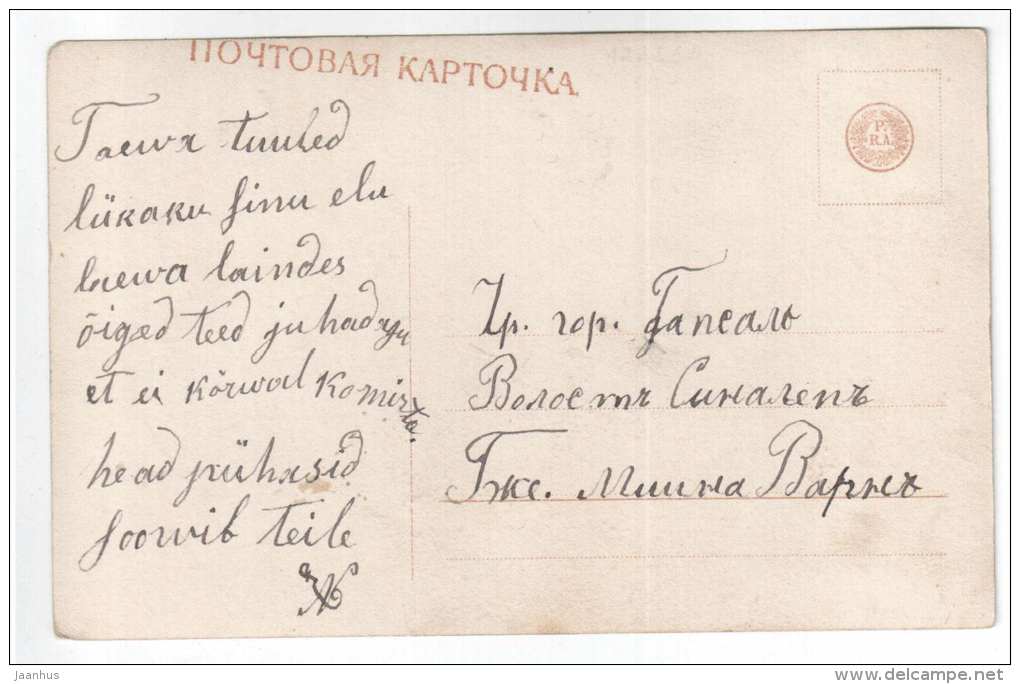 ПОЧТОВАЯ КАРТОЧКА
P.
R.A.
Taewa tuuled
lükaku sinu elu
laewa laindes
õiged teed juhadagu
et ei kõrwal komista.
head pühasid
soowib teile
Чр. гор. Гапсаль
Волостъ Синалепъ
Бже. Миина Варнъ
Jaanhus
www.delcampe.net